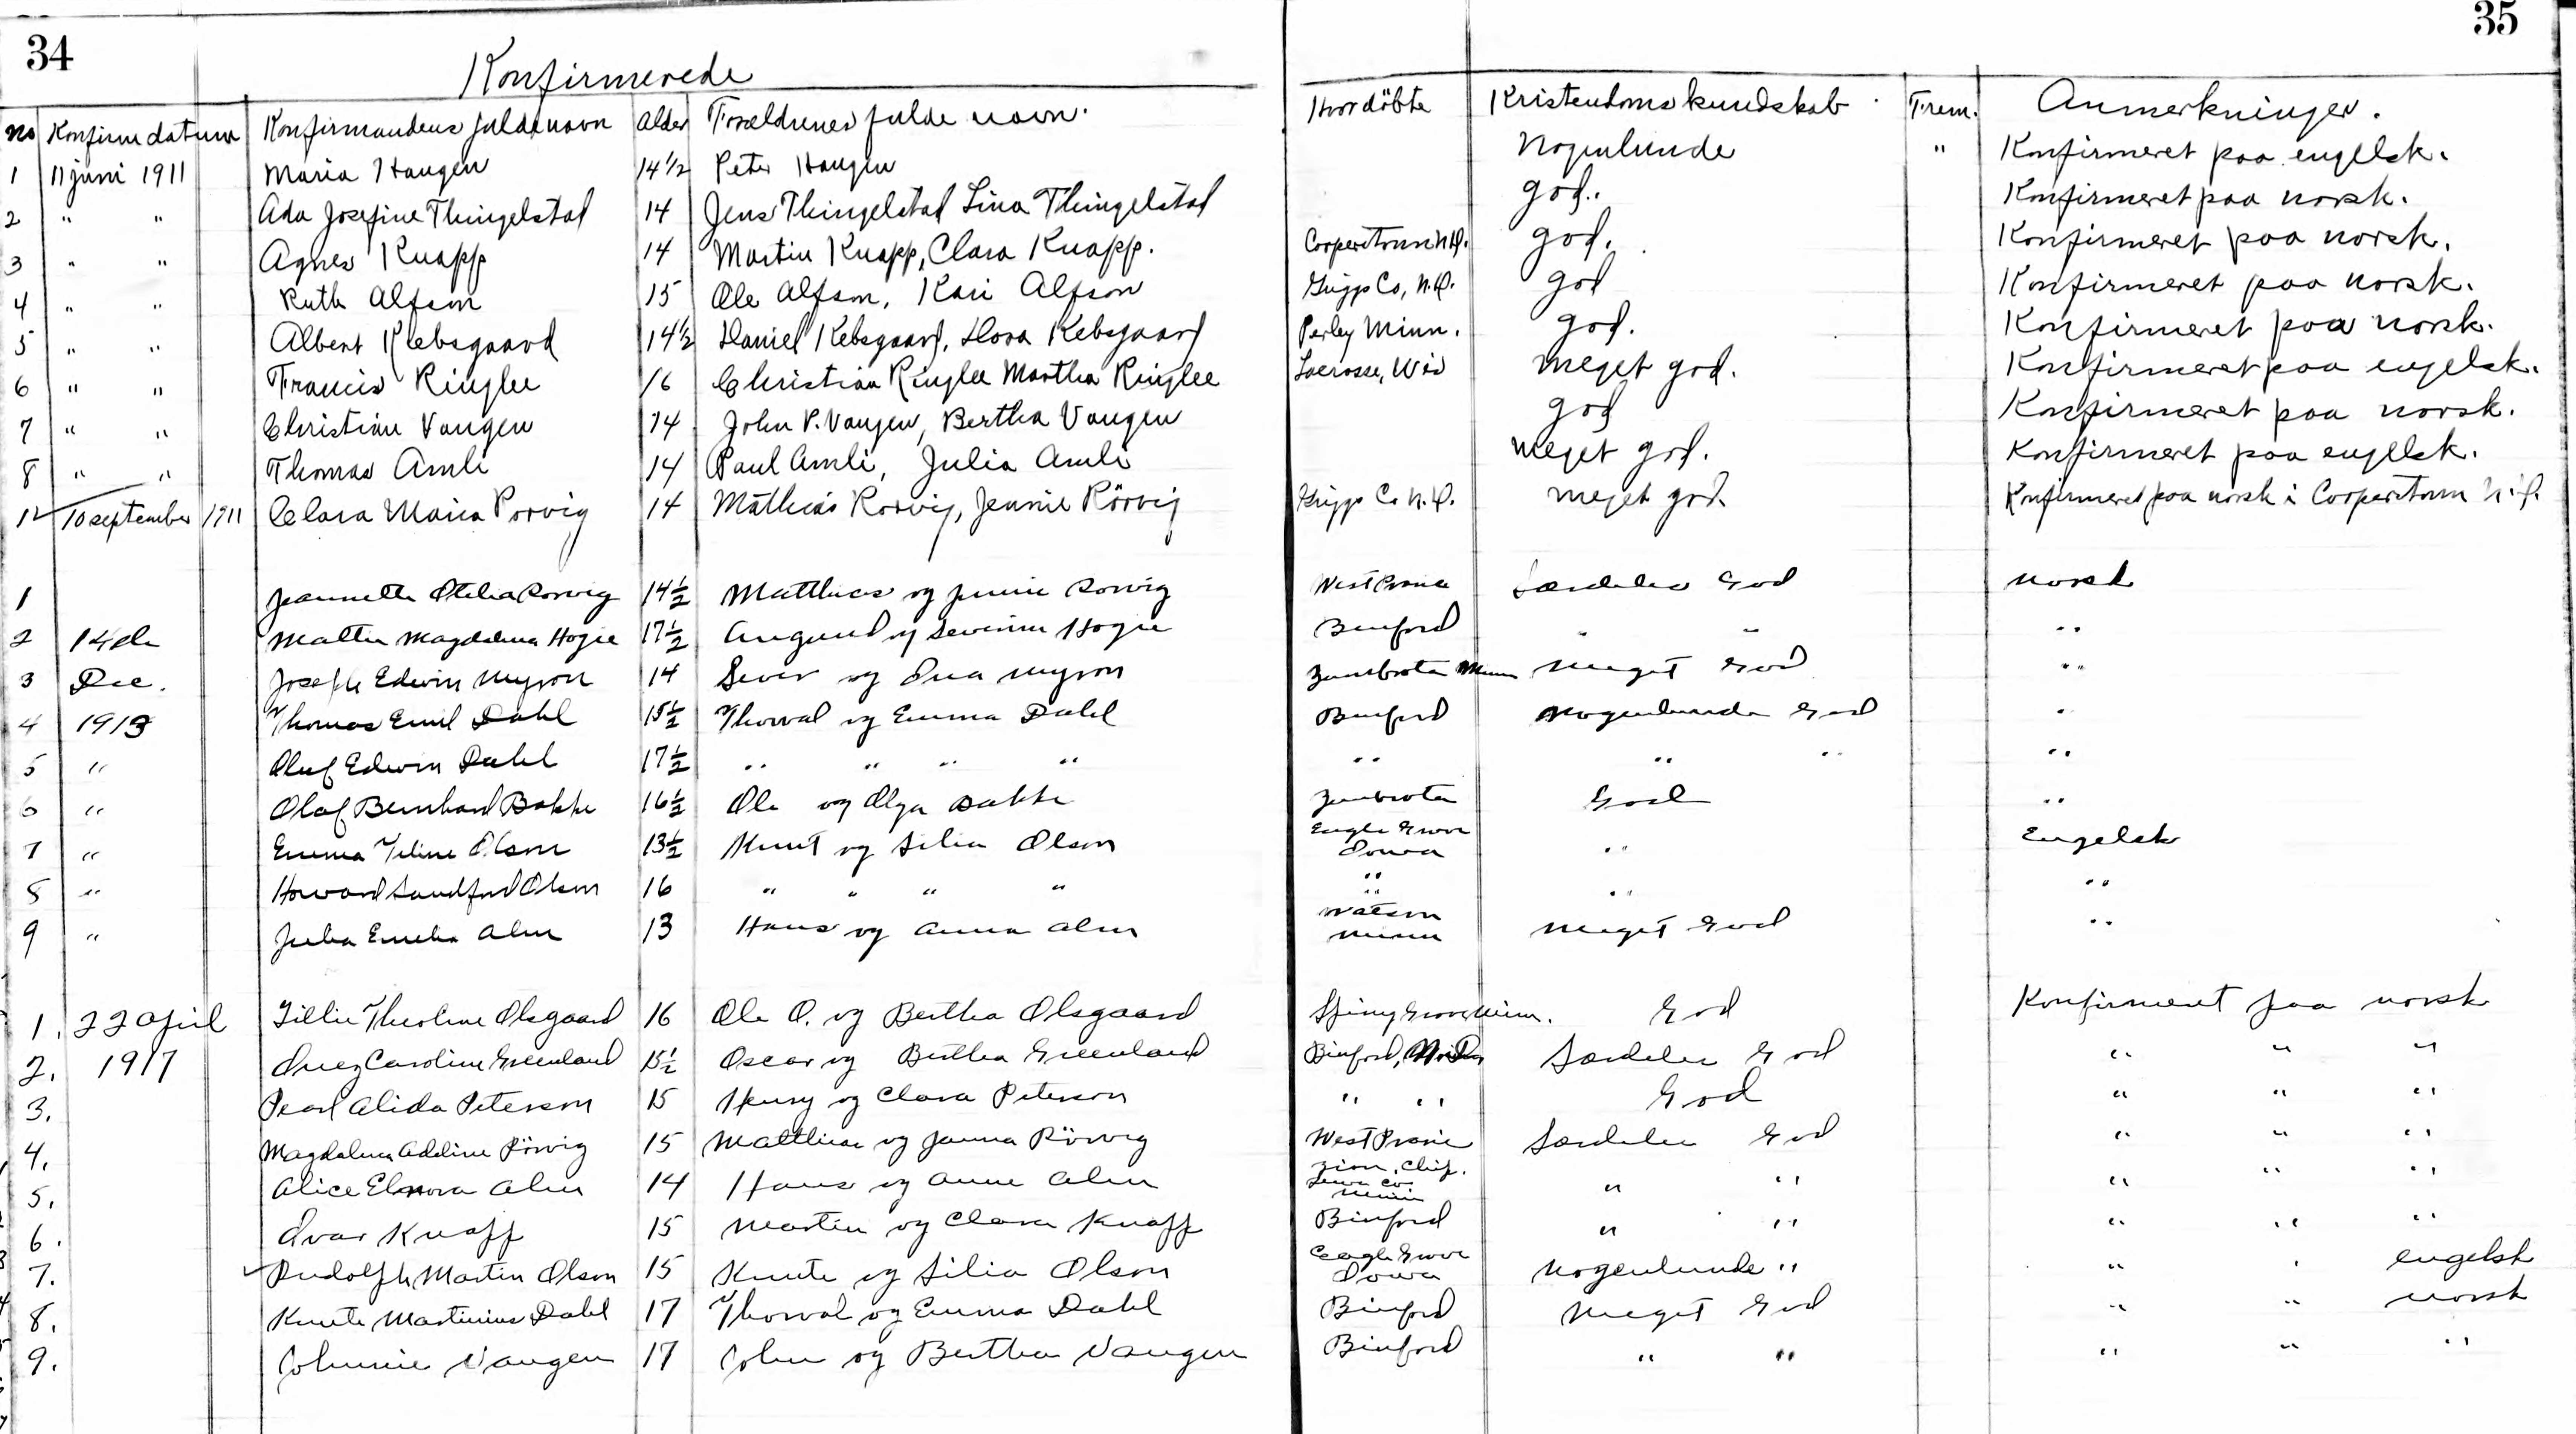 34
35
Konfirmerede
No Konfirm datum Konfirmandens fulde navn Alder Forældrenes fulde navn. Hvor döbte Kristendomskundskab Frem. Anmerkninger.
1 11 juni 1911 Maria Haugen 14½ Peter Haugen Nogenlunde " Konfirmeret paa engelsk.
2 " " Ada Josefine Thingelstad 14 Jens Thingelstad Lina Thingelstad god. Konfirmeret paa norsk.
3 " " Agnes Knapp 14 Martin Knapp, Clara Knapp. Cooperstown N.D. god. Konfirmeret paa norsk.
4 " " Ruth Alfson 15 Ole Alfson, Kari Alfson Griggs Co, N.D. god Konfirmeret paa norsk.
5 " " Albert Klebsgaard 14½ Daniel Kebsgaard, Dora Kebsgaard Perley Minn. god. Konfirmeret paa norsk.
6 " " Francis Ringlee 16 Christian Ringlee Martha Ringlee Lacrosse, Wis meget god. Konfirmeret paa engelsk.
7 " " Christian Vangen 14 John P. Vangen, Bertha Vangen god Konfirmeret paa norsk.
8 " " Thomas Amli 14 Paul Amli, Julia Amli meget god. Konfirmeret paa engelsk.
1 10 september 1911 Clara Maria Rorvig 14 Mathias Rorvig, Jennie Rörvig Griggs Co N.D. meget god. Konfirmeret paa norsk i Cooperstown N.D.
1 Jeannette Otelia Rorvig 14½ Matthias og Jennie Rorvig West Prairie Særdeles God norsk
2 14de Mattie Magdalena Hogie 17½ Amund og Severine Hogie Binford " " "
3 Dec. Joseph Edwin Myron 14 Sever og Ina Myron Zumbrota Minn Meget God "
4 1913 Thomas Emil Dahl 15½ Thorval og Emma Dahl Binford Nogenlunde God "
5 " Oluf Edwin Dahl 17½ " " " " " " " "
6 " Olaf Bernhard Bakke 16½ Ole og Olga Bakke Zumbrota God "
7 " Emma Teline Olson 13½ Knut og Silia Olson Eagle Grove Iowa " Engelsk
8 " Howard Sandford Olson 16 " " " " " " " "
9 " Julia Emelia Alm 13 Hans og Anna Alm Watson Minn Meget God "
1. 22 April Tillie Theoline Olsgaard 16 Ole O. og Bertha Olsgaard Spring Grove Minn. God Konfirmeret paa norsk
2. 1917 Inez Caroline Greenland 15½ Oscar og Bertha Greenland Binford, Særdeles God " " "
3. Pearl Alida Peterson 15 Henry og Clara Peterson " " God " " "
4. Magdalena Adeline Rörvig 15 Matthias og Janna Rörvig West Prairie Særdeles God " " "
5. Alice Elnora Alm 14 Hans og Anne Alm Zion, Chip. Co Minn " " " " "
6. Ivar Knapp 15 Martin og Clara Knapp Binford " " " " "
7. Rudolph Martin Olson 15 Knute og Silia Olson Eagle Grove Iowa Nogenlunde " " " engelsk
8. Knute Martinius Dahl 17 Thorval og Emma Dahl Binford Meget God " " norsk
9. Johnnie Vangen 17 John og Bertha Vangen Binford " " " " "